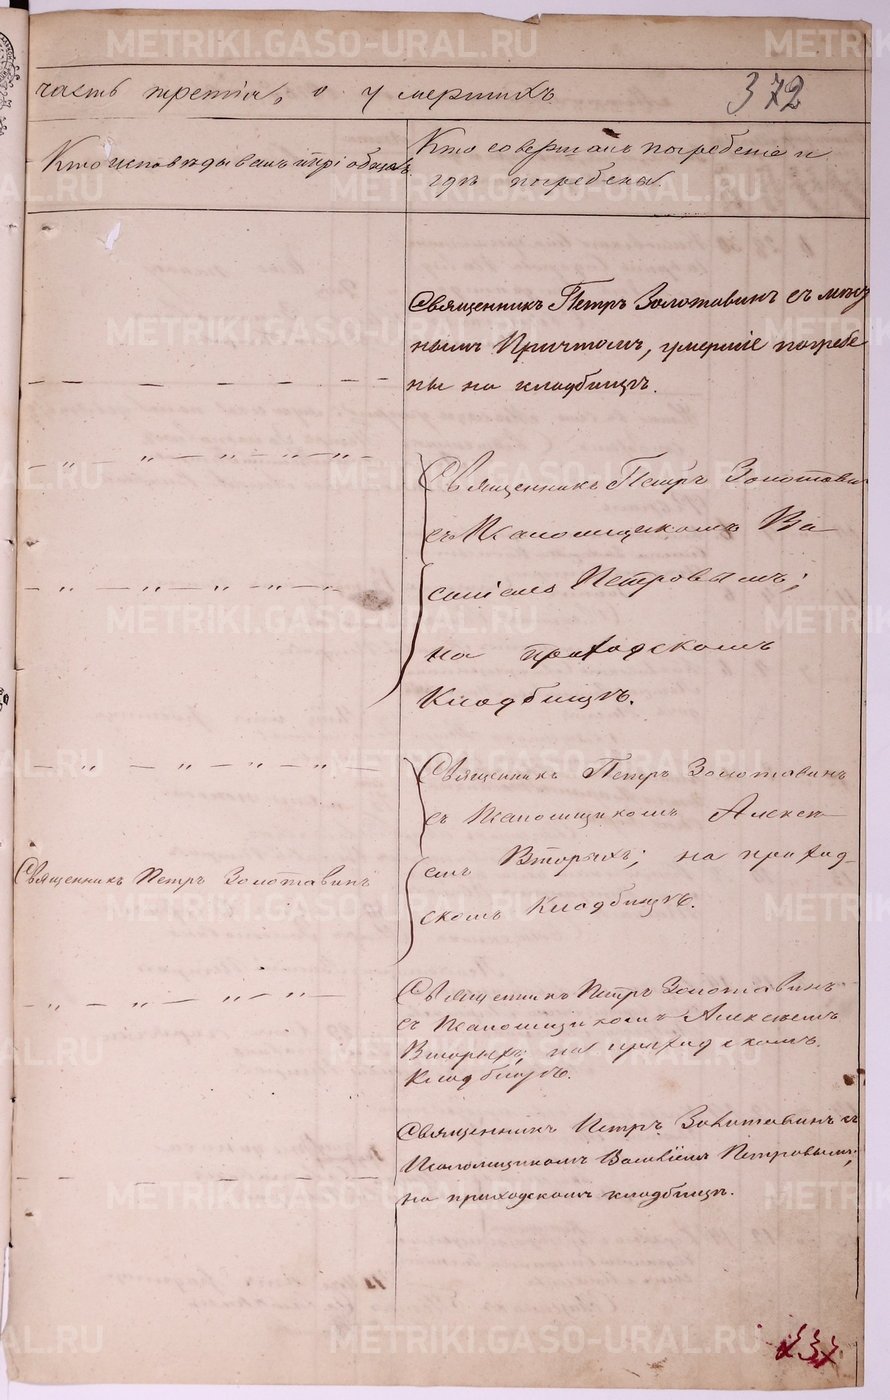 часть третія, о умершихъ
372
Кто исповѣдывалъ и пріобщалъ
Кто совершалъ погребеніе и
гдѣ погребены.
Священникъ Петръ Золотавинъ съ мѣст
нымъ Причтомъ, умершіе погребе
ны на кладбищѣ.
Священникъ Петръ Золотавин
съ Псаломщикомъ Ва
силіемъ Петровымъ;
на приходскомъ
Кладбищѣ.
Священникъ Петръ Золотавинъ
съ Псаломщикомъ Алексѣ
емъ Вторыхъ; на приход
скомъ Кладбищѣ.
Священникъ Петръ Золотавинъ
Священникъ Петръ Золотавинъ
съ Псаломщикомъ Алексѣемъ
Вторыхъ, на приходскомъ
Кладбищѣ.
Священникъ Петръ Золотавинъ съ
Псаломщикомъ Василіемъ Петровымъ;
на приходскомъ кладбищѣ.
METRIKI.GASO-URAL.RU